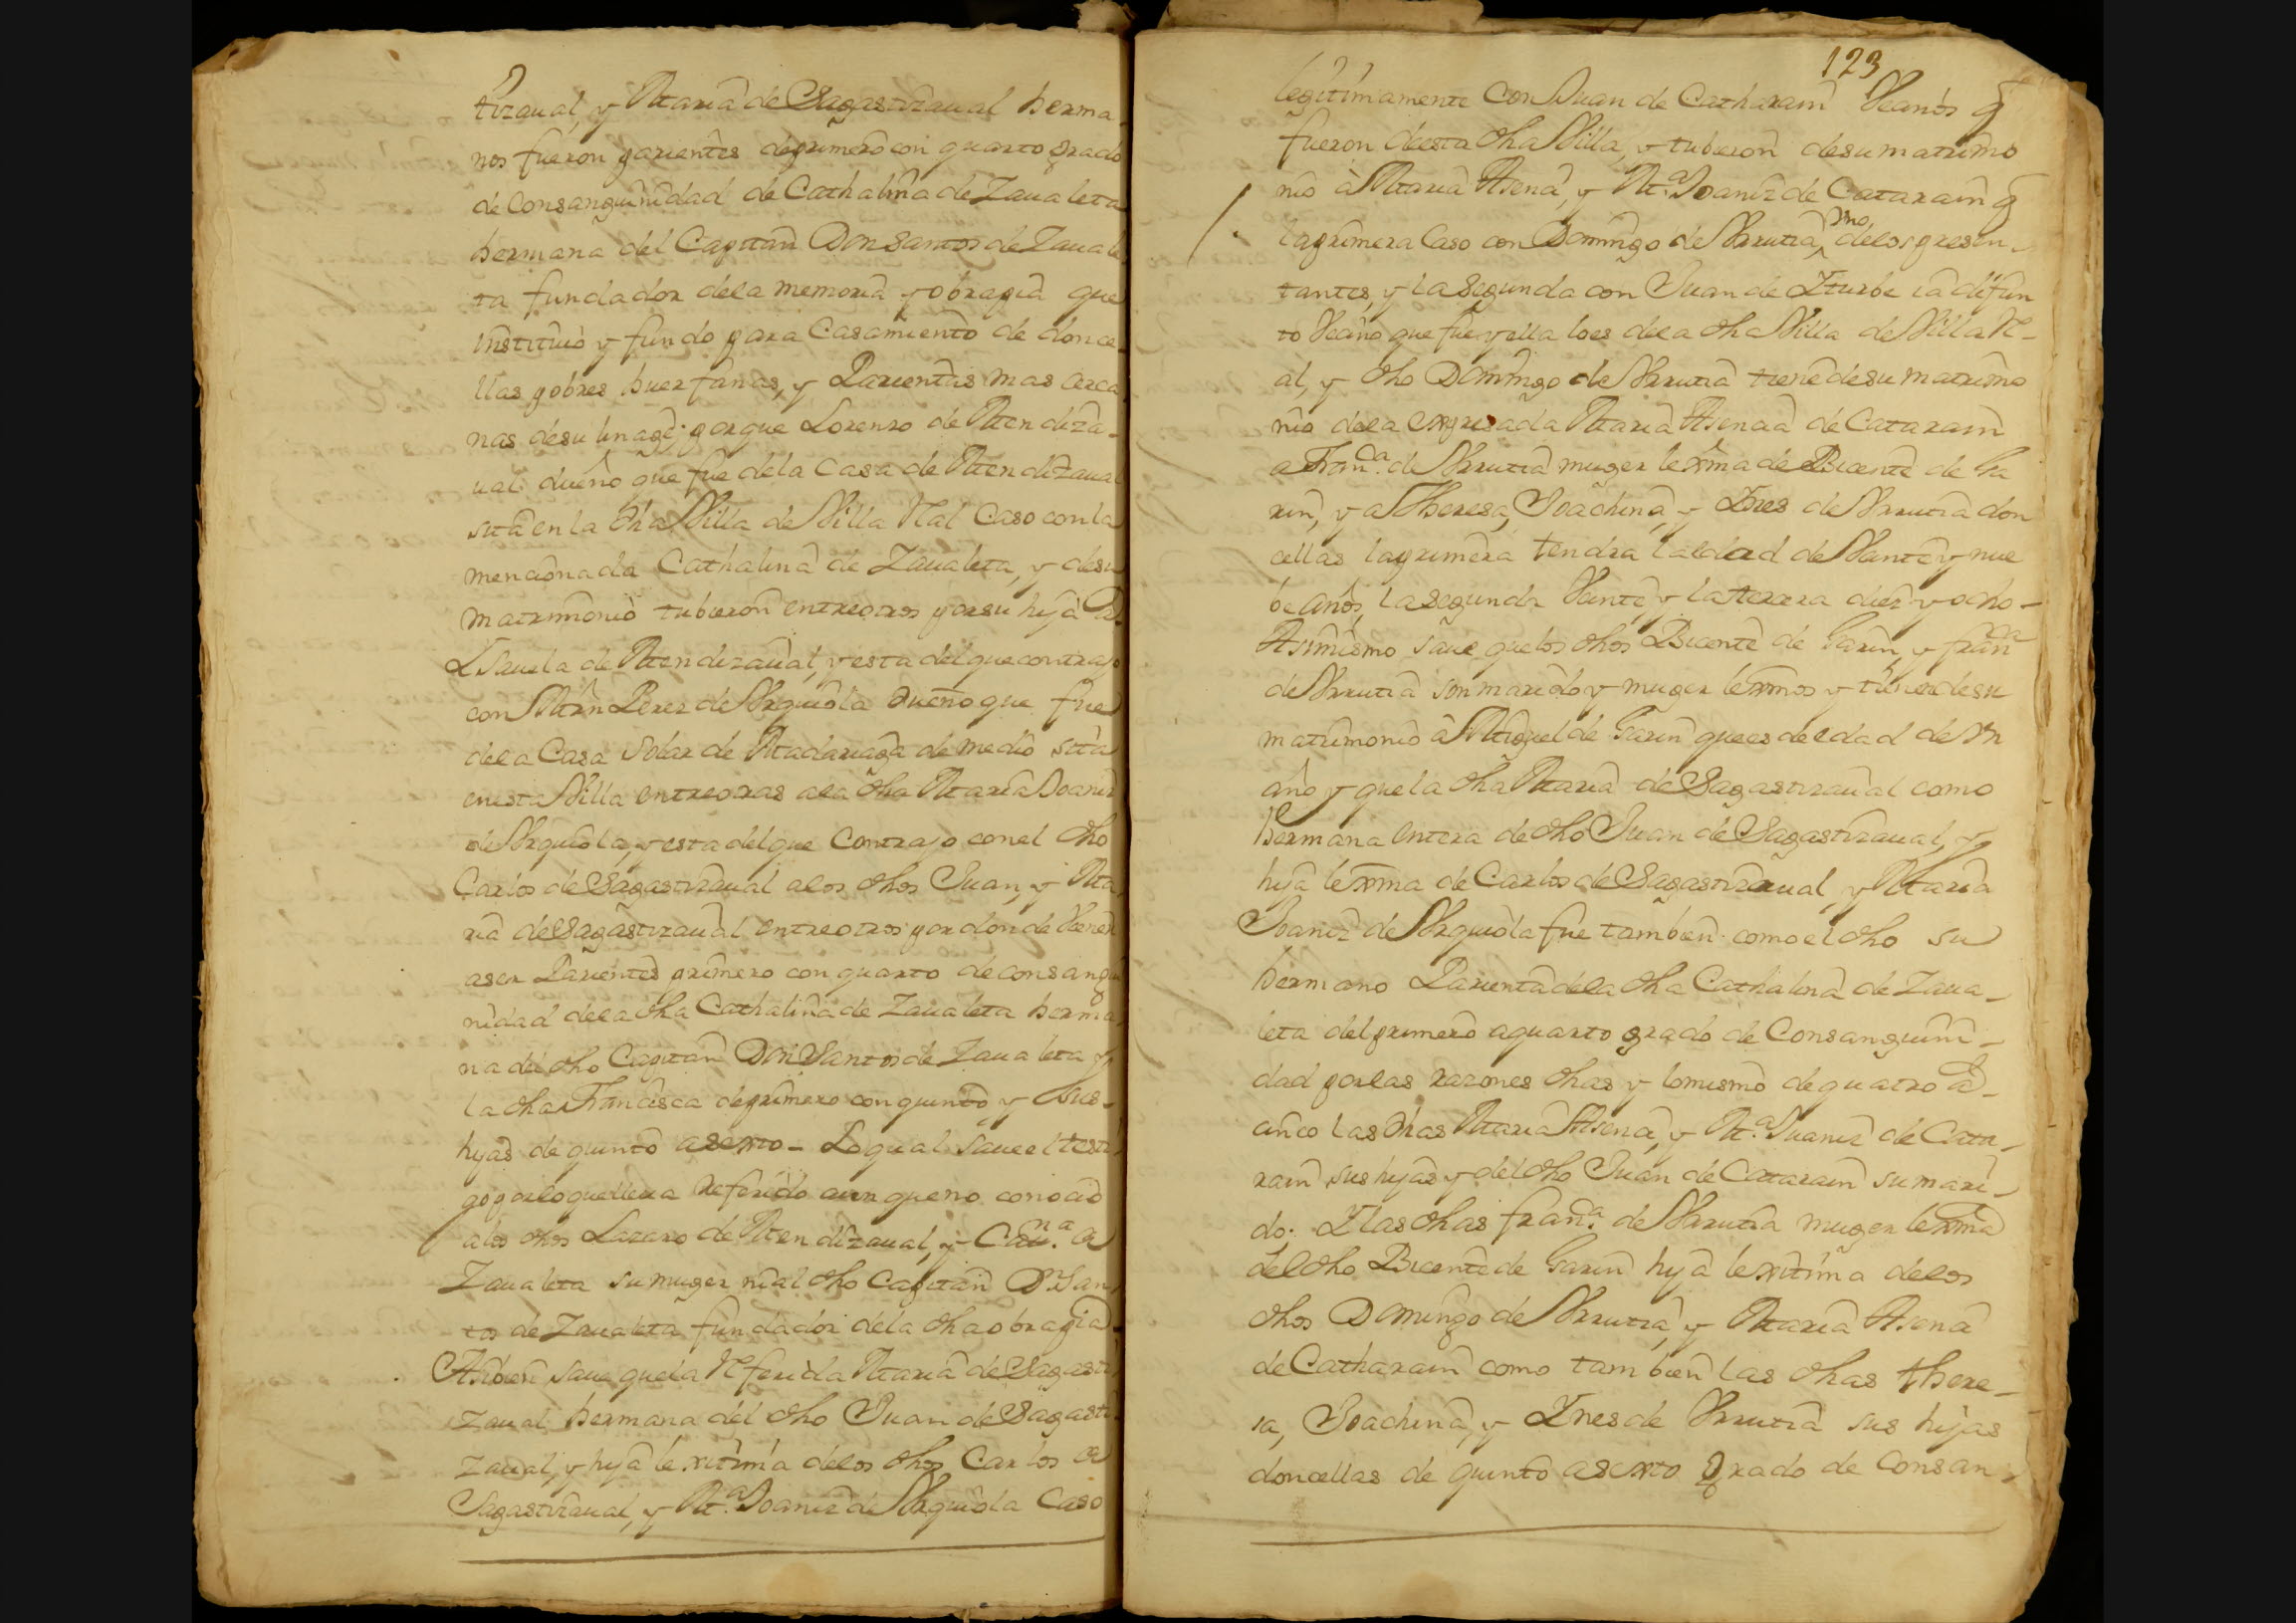 tizaual, y Maria de Sagastizaual herma-
nos fueron parientes de primero con quarto grado
de Consanguinidad de Cathalina de Zaualeta
hermana del Capitan Don Santos de Zauale
ta fundador dela memoria y obrapia que
instituio y fundo para Casamiento de donce-
llas pobres huerfanas, y Parientas mas cerca
nas desu linage; porque Lorenzo de Mendiza-
ual dueño que fue dela Casa de Mendizaual
sita en la dha Villa de Villa Ral Caso con la
mencionada Cathalina de Zaualeta, y desu
matrimonio tubieron entreotros por su hija a
Isauela de Mendizaual, y esta del que contrajo
con Mrn Perez de Vrquiola dueño que fue
dela Casa Solar de Madariaga de medio sita
enesta Villa entreotras ala dha Maria Joaniz
de Vrquiola, y esta del que Contrajo con el dho
Carlos de Sagastizaual alos dhos Juan, y Ma
ria de Sagastizaual entreotros por donde Vienen
aser Parientes primero con quarto de consangui
nidad dela dha Cathalina de Zaualeta herma
na del dho Capitan Don Santos de Zaualeta y
la dha Francisca de primero con quinto, y sus
hijas de quinto asexto - Lo qual saue el testi
go por lo que lleua Referido aunque no conocio
alos dhos Lazaro de Mendizaual, y Cana. de
Zaualeta su muger ni al dho Capitan Dn. San
tos de Zaualeta fundador dela dha obrapia -
Asibien saue quela Referida Maria de Sagasti
zaual hermana del dho Juan de Sagasti
zaual, y hija lexitima delos dhos Carlos de
Sagastizaual, y Ma. Joaniz de Vrquiola Caso
123
legitimamente Con Juan de Catharain Vecinos q
fueron deesta dha Villa, y tubieron desu matrimo
nio à Maria Asencia, y Ma. Joaniz de Catarain q
la primera Caso con Domingo de Vrrutia Vno delos presen-
tantes, y la Segunda con Juan de Yturbe ia difun
to Vecino que fue y ella loes dela dha Villa de Villa R-
al, y dho Domingo de Vrrutia tiene desu matrimo
nio dela expresada Maria Asencia de Catarain
a Franca. de Vrrutia muger lexma de Bicente de Ga
rin, y a Theresa, Joachina, y Ynes de Vrrutia don
cellas la primera tendra la edad de Veinte y nue
be años, la segunda Veinte y la tercera diez y ocho -
Asimismo saue que los dhos Bicente de Garin, y franca
de Vrrutia son marido y muger lexmos y tienen desu
matrimonio â Miguel de Garin que es de edad de Vn
año y que la dha Maria de Sagastizaual como
hermana entera de dho Juan de Sagastizaual, y
hija lexma de Carlos de Sagastizaual, y Maria
Joaniz de Vrquiola fue tambien como el dho su
hermano Parienta dela dha Cathalina de Zaua-
leta del primero aquarto grado de Consanguini-
dad por las razones dhas y lo mismo de quatro a
cinco las dhas Maria Asencia, y Ma. Juaniz de Cata-
rain sus hijas y del dho Juan de Catarain su mari-
do. Y las dhas frana. de Vrrutia muger lexma
del dho Bicente de Garin hija lexitima delos
dhos Domingo de Vrrutia, y Maria Asencia
de Catharain como tambien las dhas there-
sa, Joachina, y Ynes de Vrrutia sus hijas
doncellas de quinto asexto grado de Consan-